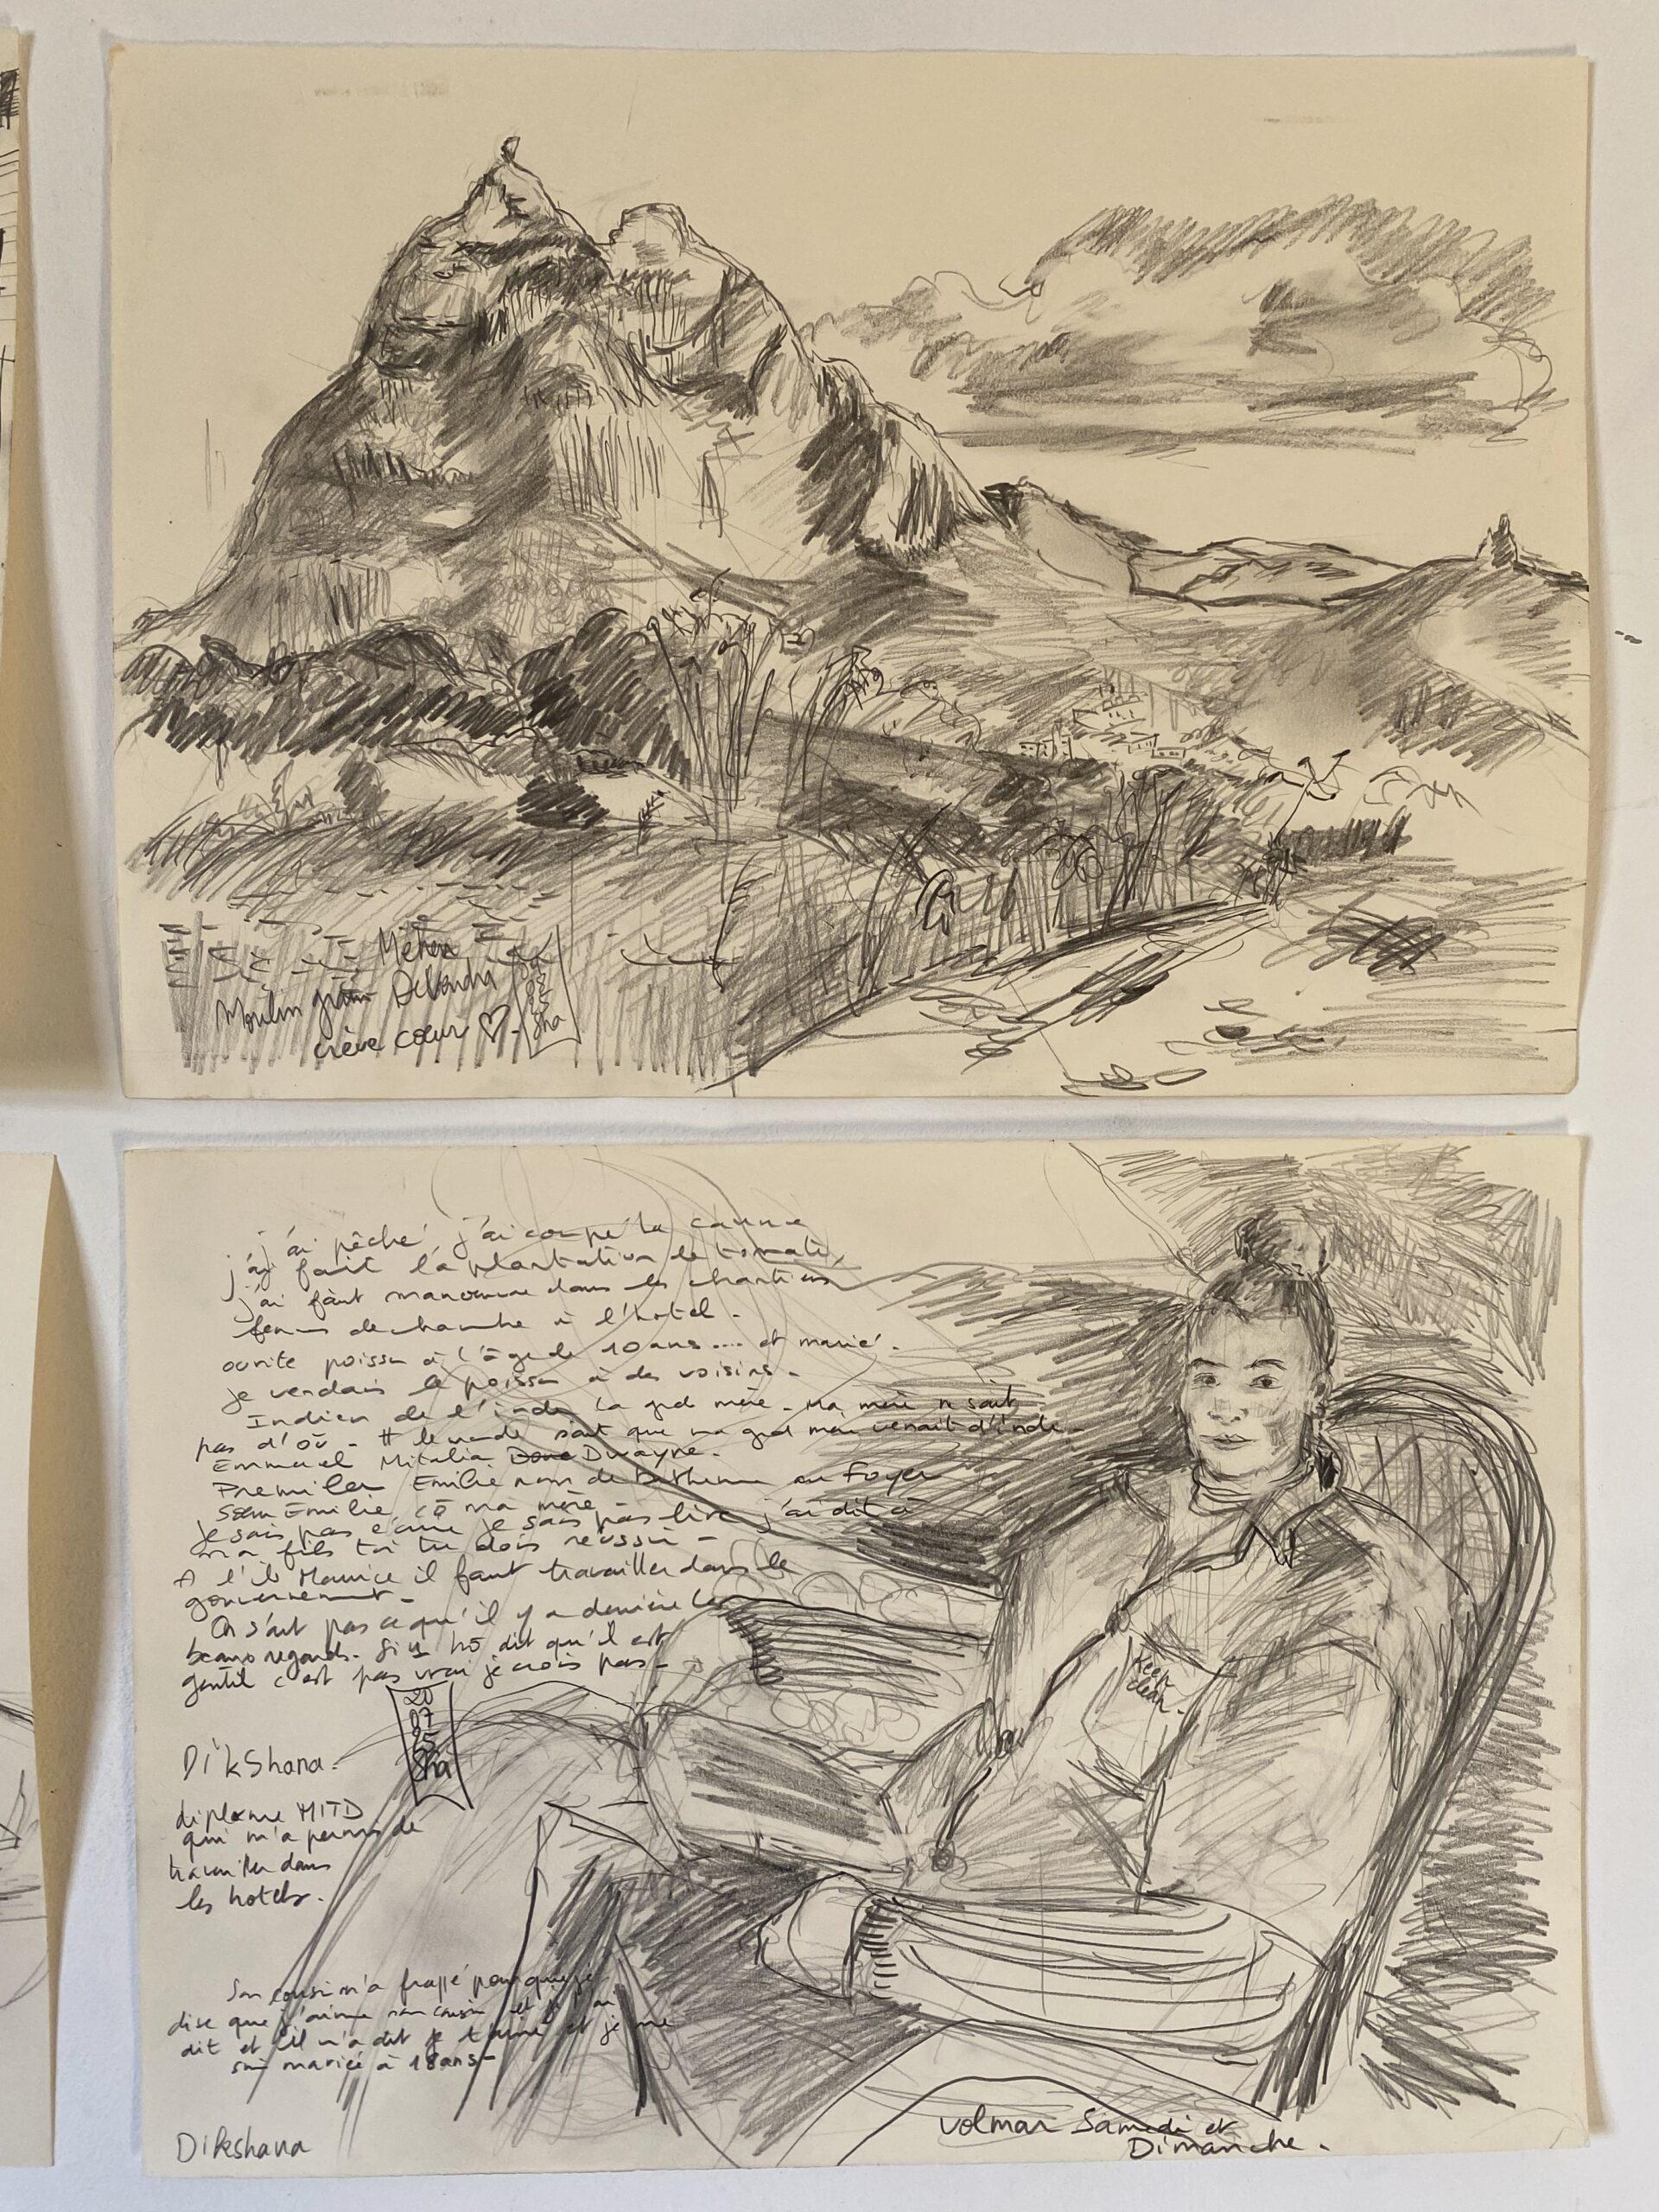 Moulin
crève coeur ♡.
sha
j'ai pêché, j'ai coupé la canne
j'ai fait la plantation de tomate,
j'ai fait manoeuvre dans les chantiers
femme de chambre à l'hotel.
poisson à l'âge de 10 ans .... et marié.
je vendais le poisson à des voisins.
Indien de l'inde la grd mère. Ma mère n sait
pas d'où. le monde sait que ma grd mère venait d'inde.
Emmanuel Mitalia Dwayne.
Premiler Emilie nom de au Foyer
Sœur Emilie ma mère.
je sais pas écrire je sais pas lire j'ai dit à
ma fils toi tu dois réussir -
A l'ile Maurice il faut travailler dans le
gouvernement.
On sait pas ce qu'il y a derrière les
beaux regards. Si 1 dit qu'il est
gentil c'est pas vrai je crois pas.
20
07
25
sha
DikShana.
diplome MITD
qui m'a permis de
travailler dans
les hotels.
Son cousin m'a frappé pour que je
dise que j'aime son cousin et je l'ai
dit et il m'a dit je t'aime et je me
suis mariée à 18 ans -
Keep
clean.
Volmar Samedi et
Dimanche.
Dikshana